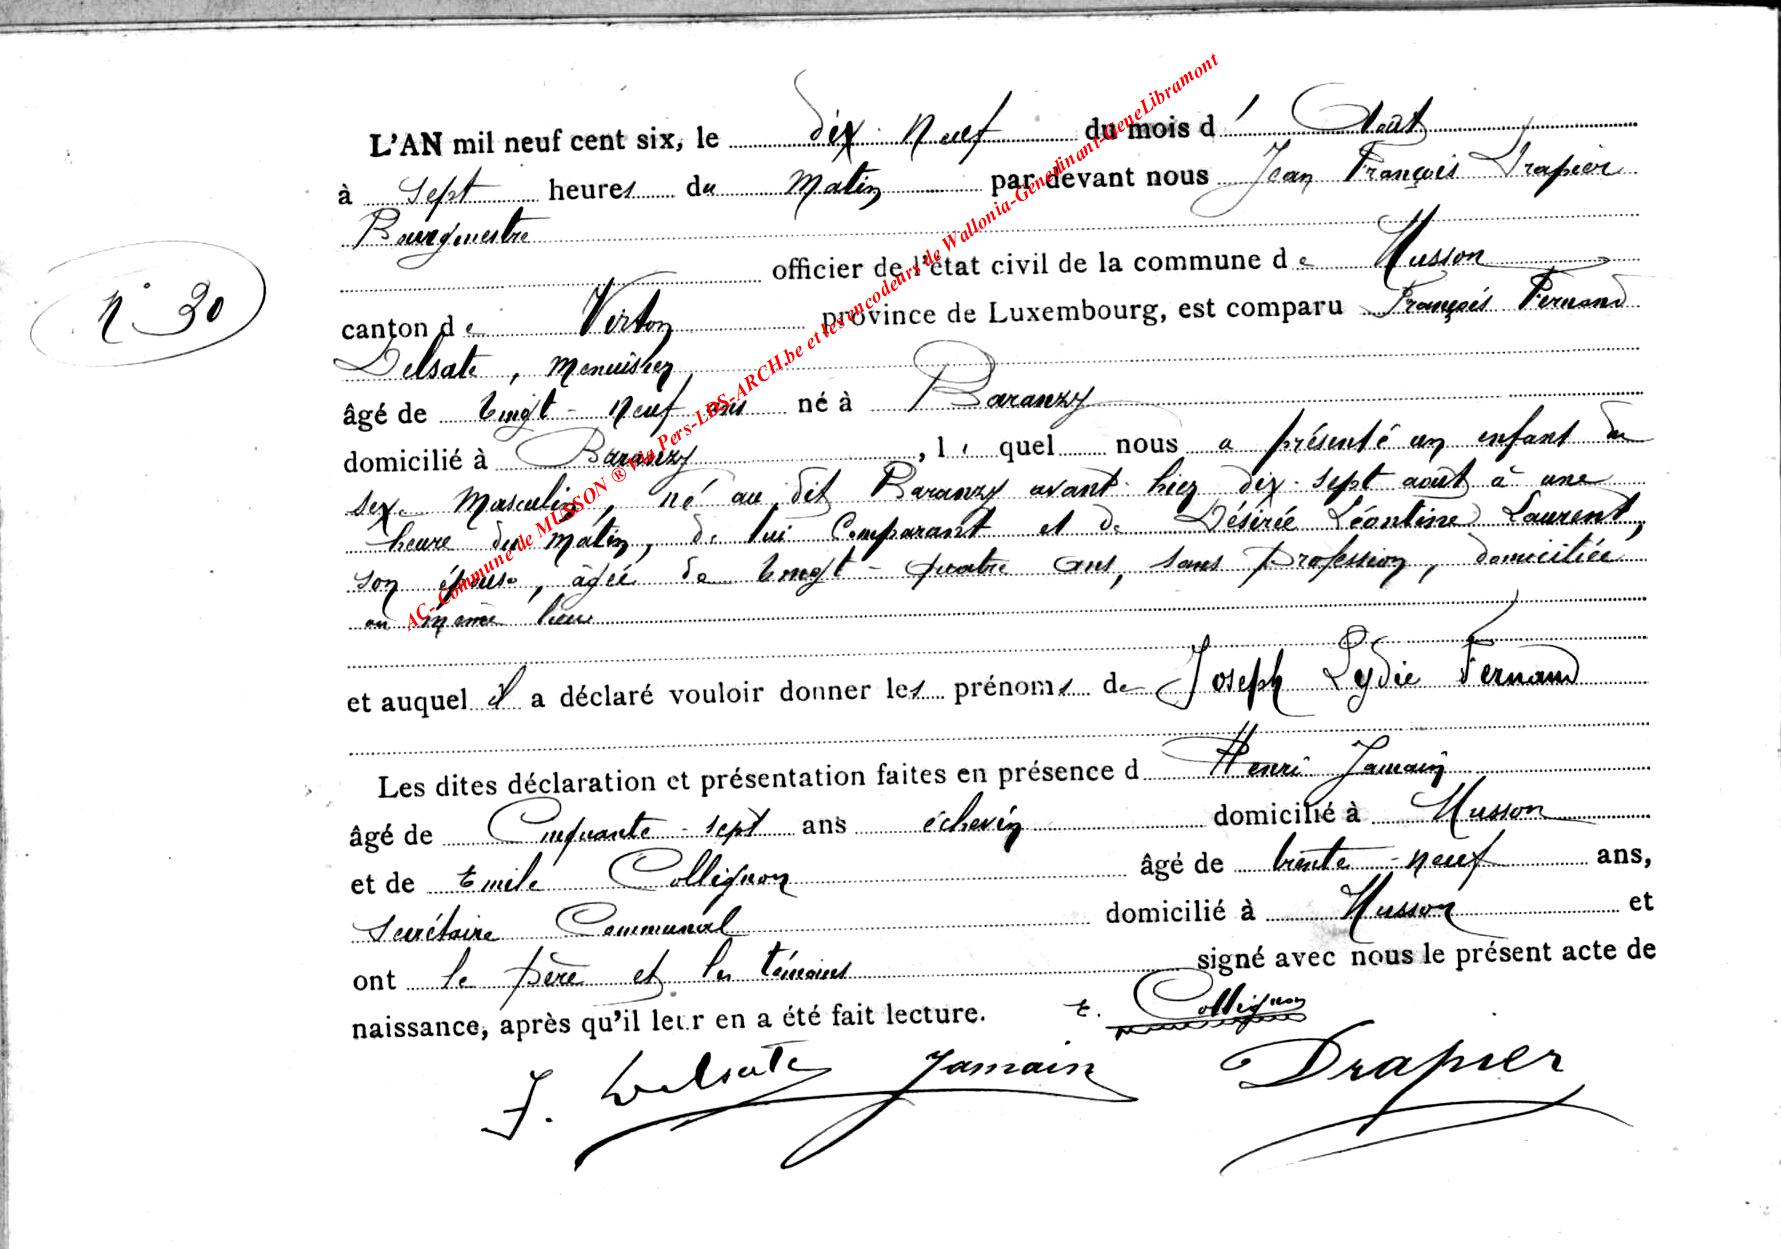 L'AN mil neuf cent six, le dix-neuf du mois d'Août
à sept heures du Matin par devant nous Jean François Drapier
Bourgmestre
officier de l'état civil de la commune de Musson
canton de Virton province de Luxembourg, est comparu François Fernand
Delsate, menuisier,
âgé de vingt-neuf ans né à Baranzy
domicilié à Baranzy, lequel nous a présenté un enfant du
sexe Masculin, né au dit Baranzy avant-hier dix-sept août à une
heure du matin, de lui Comparant et de Désirée Léontine Laurent,
son épouse, âgée de vingt-quatre ans, sans profession, domiciliée
au même lieu
et auquel il a déclaré vouloir donner les prénoms de Joseph Lydie Fernand
Les dites déclaration et présentation faites en présence d Henri Jamain
âgé de Cinquante-sept ans échevin domicilié à Musson
et de Emile Collignon âgé de trente-neuf ans,
secrétaire Communal domicilié à Musson et
ont le père et les témoins signé avec nous le présent acte de
naissance, après qu'il leur en a été fait lecture. E. Collignon
F. Delsate Jamain Drapier
N° 30
AC-Commune de MUSSON ® via Pers-LDS-ARCH.be et les encodeurs de Wallonia-Genedinant-GeneLibramont